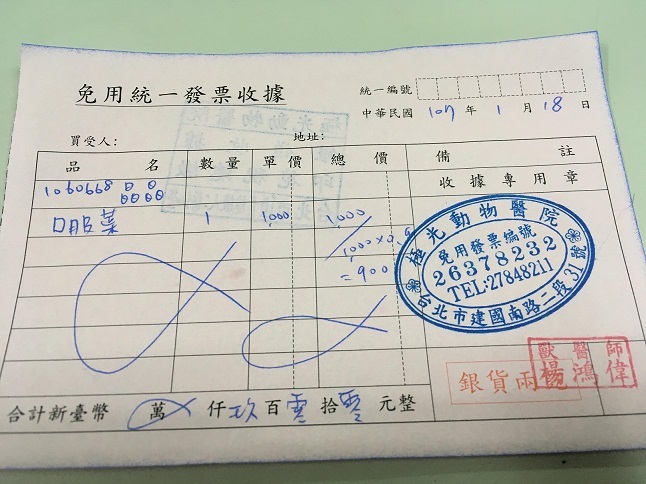 免用統一發票收據
統一編號
中華民國 107 年 1 月 18 日
買受人： 地址：
品名 數量 單價 總價 備註
收據專用章
1060668 日日日日日日
口服藥 1 1,000 1,000
1,000×0.9
=900
極光動物醫院
免用發票編號
26378232
TEL:27848211
台北市建國南路二段31號
銀貨兩
獸醫師
楊鴻偉
合計新臺幣 萬 仟 玖 百 零 拾 零 元整